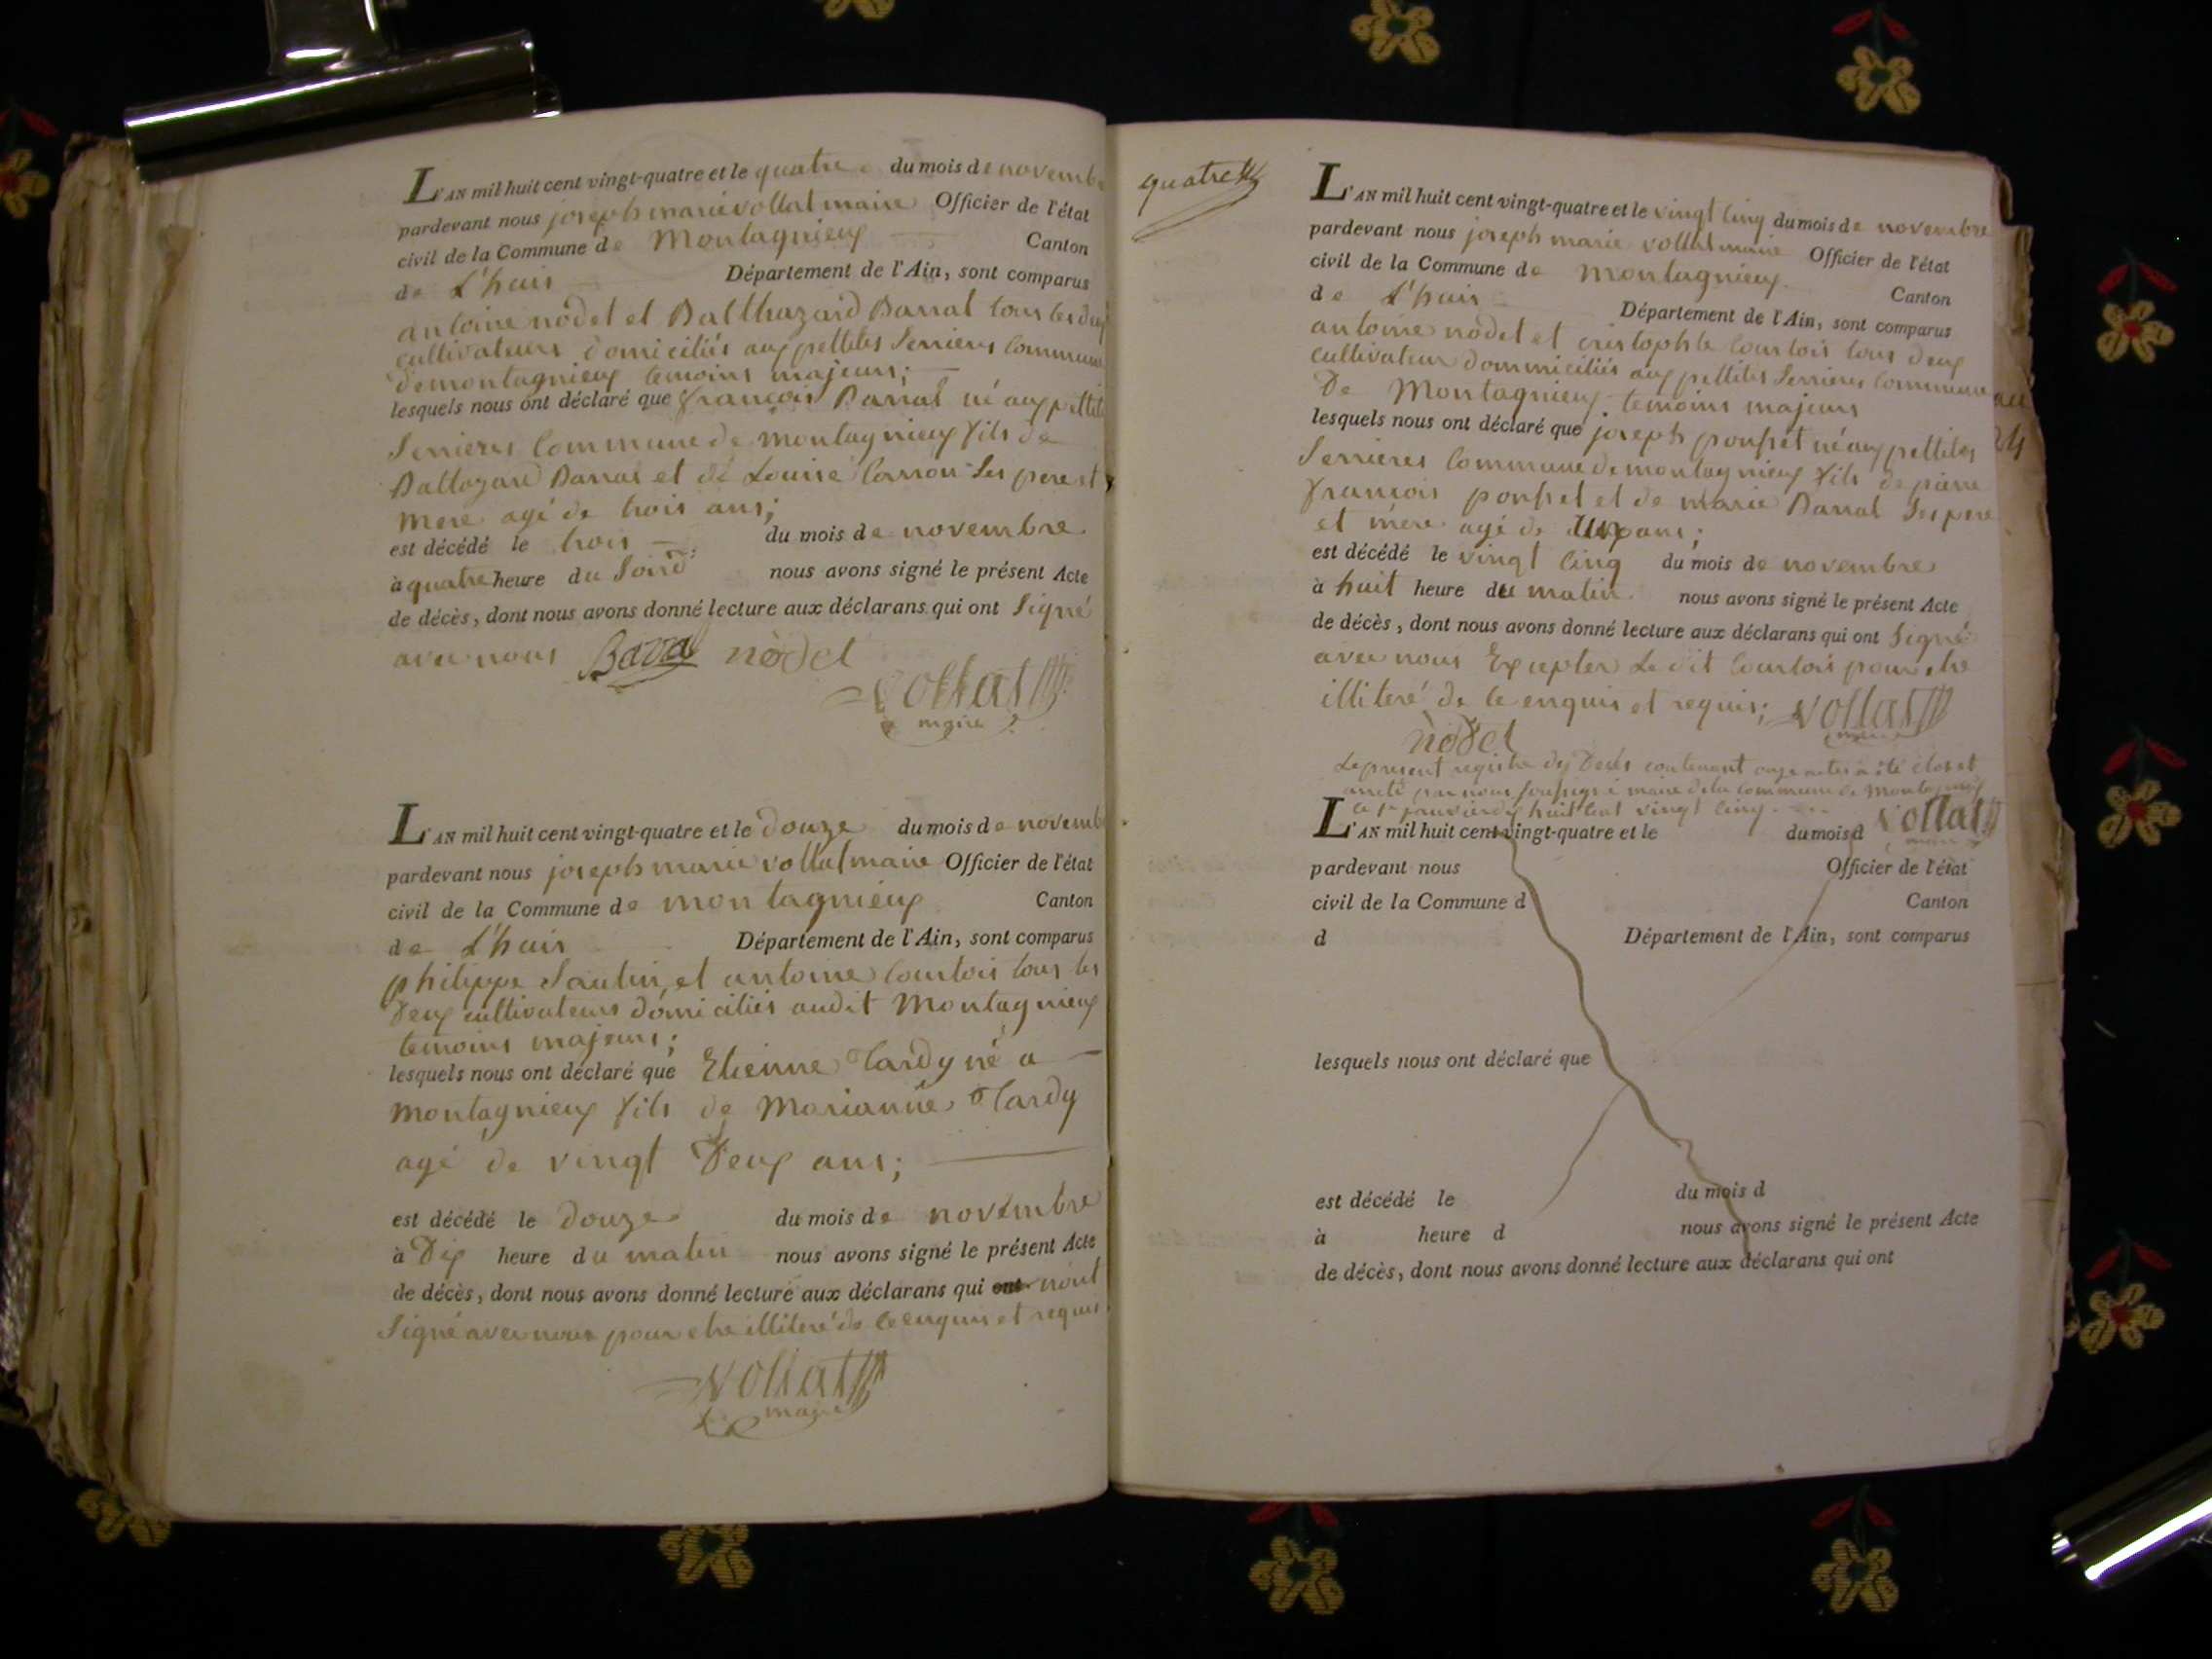 L'AN mil huit cent vingt-quatre et le quatre du mois de novemb
pardevant nous joseph marie vollat maire Officier de l'état
civil de la Commune de Montagnieux Canton
de L'huis Département de l'Ain, sont comparus
antoine nodet et Balthazard Barral tous les deux
cultivateurs domiciliés aux pettites Serrieres Commune
de montagnieux temoins majeurs;
lesquels nous ont déclaré que françois Barral né aux pettite
Serrieres Commune de montagnieux fils de
Baltazard Barral et de Louise Carron Ses pere et
mere agé de trois ans;
est décédé le trois du mois de novembre
à quatre heure du Soird nous avons signé le présent Acte
de décès, dont nous avons donné lecture aux déclarans qui ont Signé
avec nous Baral nodet
vollat
maire
L'AN mil huit cent vingt-quatre et le douze du mois de novemb
pardevant nous joseph marie vollat maire Officier de l'état
civil de la Commune de montagnieux Canton
de L'huis Département de l'Ain, sont comparus
philippe Sautin et antoine Courtois tous les
Deux cultivateurs domiciliés audit Montagnieux
temoins majeurs;
lesquels nous ont déclaré que Etienne Tardy né a
montagnieux fils de Marianne Tardy
agé de vingt Deux ans;
est décédé le douze du mois de novembre
à Dix heure du matin nous avons signé le présent Acte
de décès, dont nous avons donné lecture aux déclarans qui ont nont
Signé avec nous pour etre illiteré de ce enquis et requis
vollat
maire
quatre
L'AN mil huit cent vingt-quatre et le vingt cinq du mois de novembre
pardevant nous joseph marie vollat maire Officier de l'état
civil de la Commune de montagnieux Canton
de L'huis Département de l'Ain, sont comparus
antoine nodet et cristophle Courtois tous deux
cultivateur dommiciliés aux pettites Serrieres Commune
De Montagnieux temoins majeurs
lesquels nous ont déclaré que joseph ponsset né aux pettites
Serrieres Commune de montagnieux fils de piere
françois ponsset et de marie Barral Ses pere
et mere agé de un ans;
est décédé le vingt cinq du mois de novembre
à huit heure du matin nous avons signé le présent Acte
de décès, dont nous avons donné lecture aux déclarans qui ont Signé
avec nous Excepter Le dit Courtois pour etre
illiteré de ce enquis et requis; vollat
nodet maire
Le present registre des Decés contenant onze actes a été clos et
arreté par nous soussigné maire de la commune de Montagnieux
le 1er janvier huit cent vingt cinq. vollat
L'AN mil huit cent vingt-quatre et le du mois d
pardevant nous Officier de l'état
civil de la Commune d Canton
d Département de l'Ain, sont comparus
lesquels nous ont déclaré que
est décédé le du mois d
à heure d nous avons signé le présent Acte
de décès, dont nous avons donné lecture aux déclarans qui ont